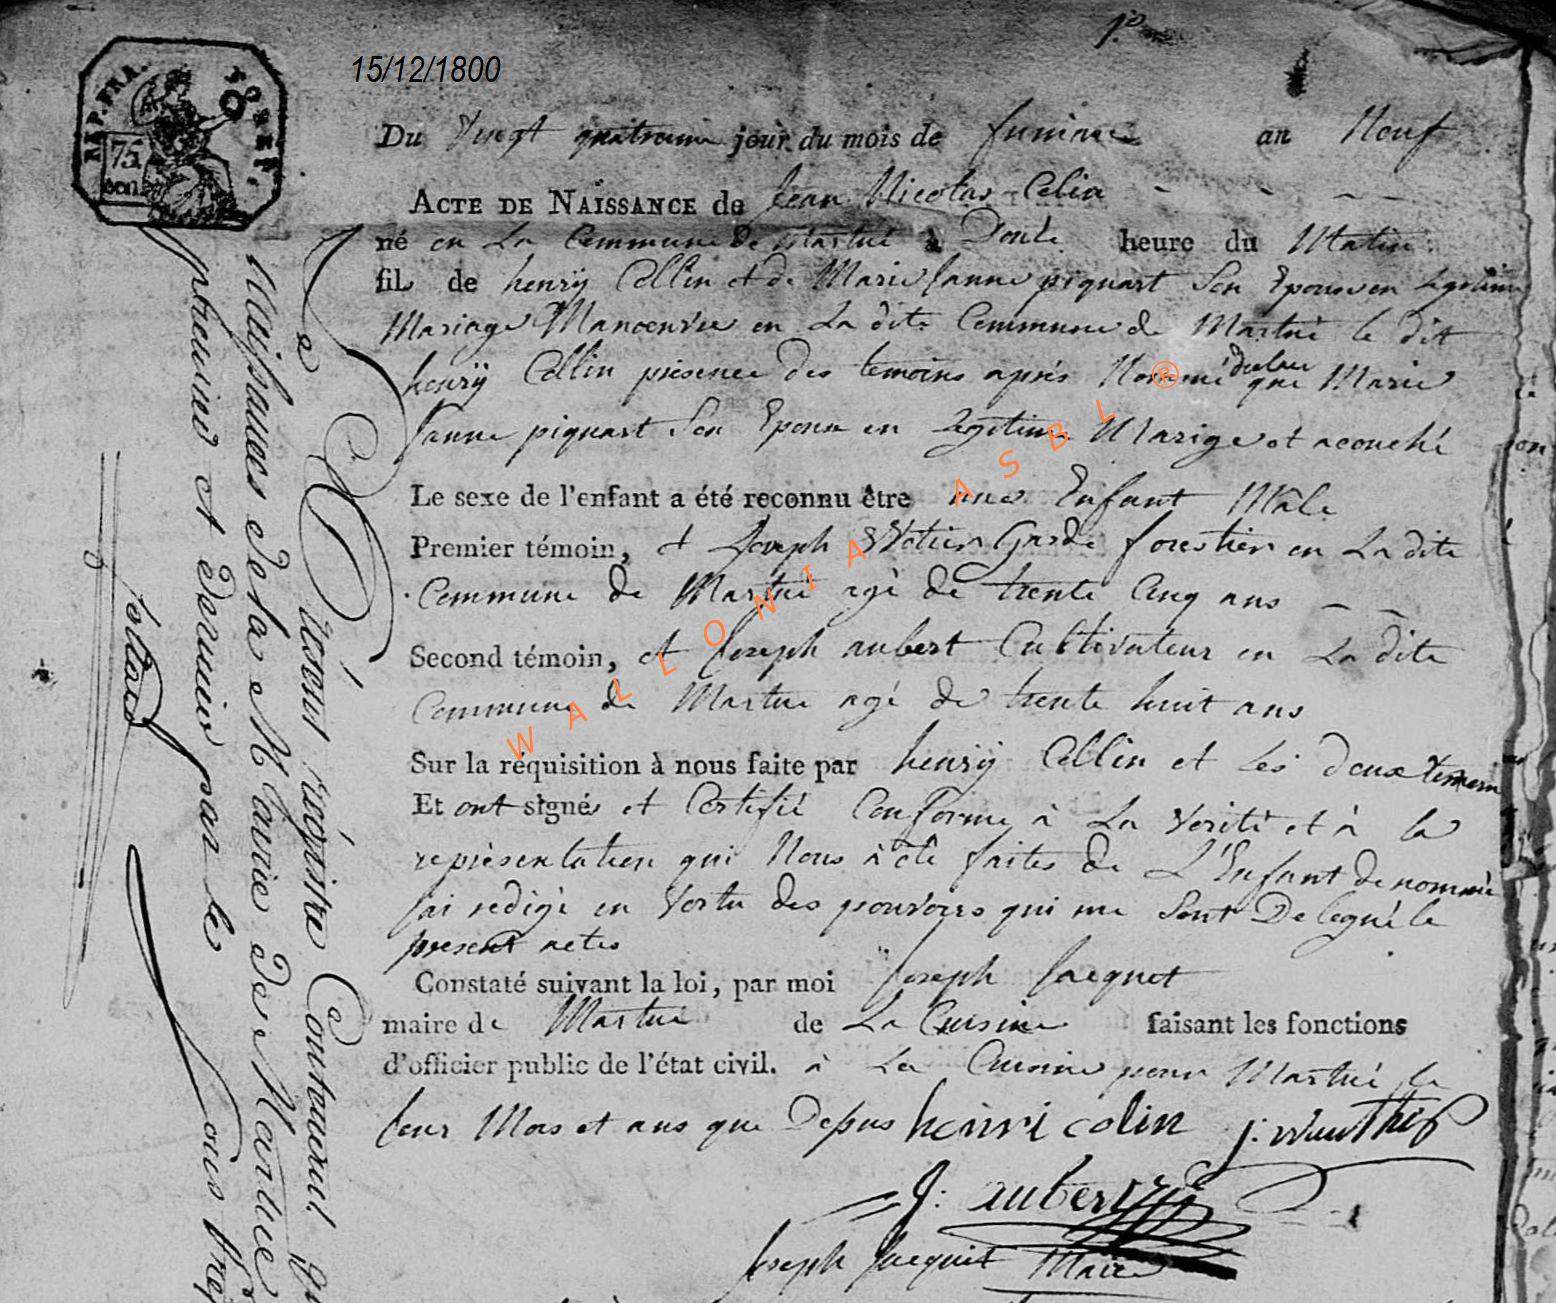 1º
15/12/1800
REP. FRA.
75
cen.
Du Vingt quatreme jour du mois de frimaire an Neuf
ACTE DE NAISSANCE de Jean Nicolas Colin
né en La Commune de Martué à Douze heure du Matin
fil de henrÿ Collin et de Marie Janne piquart Son Epouse en Legitime
Mariage Manoeuvre en La dite Commune de Martué le dit
henrÿ Collin présence des temoins aprés Nommé declare que Marie
Janne piquart Son Epouse en Legitime Marige et acouché
Le sexe de l'enfant a été reconnu être une Enfant Mâle
Premier témoin, et Joseph Garde forestier en La dite
Commune de Martué agé de trente Cinq ans
Second témoin, et Joseph aubert Cultivateur en La dite
Commune de Martue agé de trente huit ans
Sur la réquisition à nous faite par henrÿ Collin et Les deux temoin
Et ont signé et Certifié Conforme à La Verité et à la
représentation qui Nous à été faites de L'Enfant denommé
J'ai redigé en Vertu des pouvoirs qui me Sont Delegué le
present actes
Constaté suivant la loi, par moi Joseph Jacquet
maire de Martué de La Cuisine faisant les fonctions
d'officier public de l'état civil. à La Cuisine pour Martué le
Jour Mois et ans que Depus henri colin
J: aubert
Joseph Jacquet Maire
WALLONIA ASBL ®
registre Contenant
Naissances de la Mairie de
premier et dernier par le